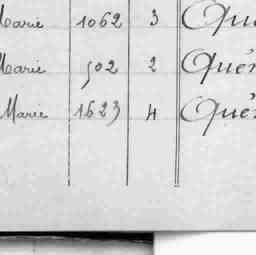 Marie 1062 3 Qué
Marie 502 2 Quér
Marie 1623 4 Quér